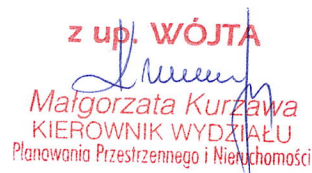 z up. WÓJTA
Małgorzata Kurzawa
KIEROWNIK WYDZIAŁU
Planowania Przestrzennego i Nieruchomości